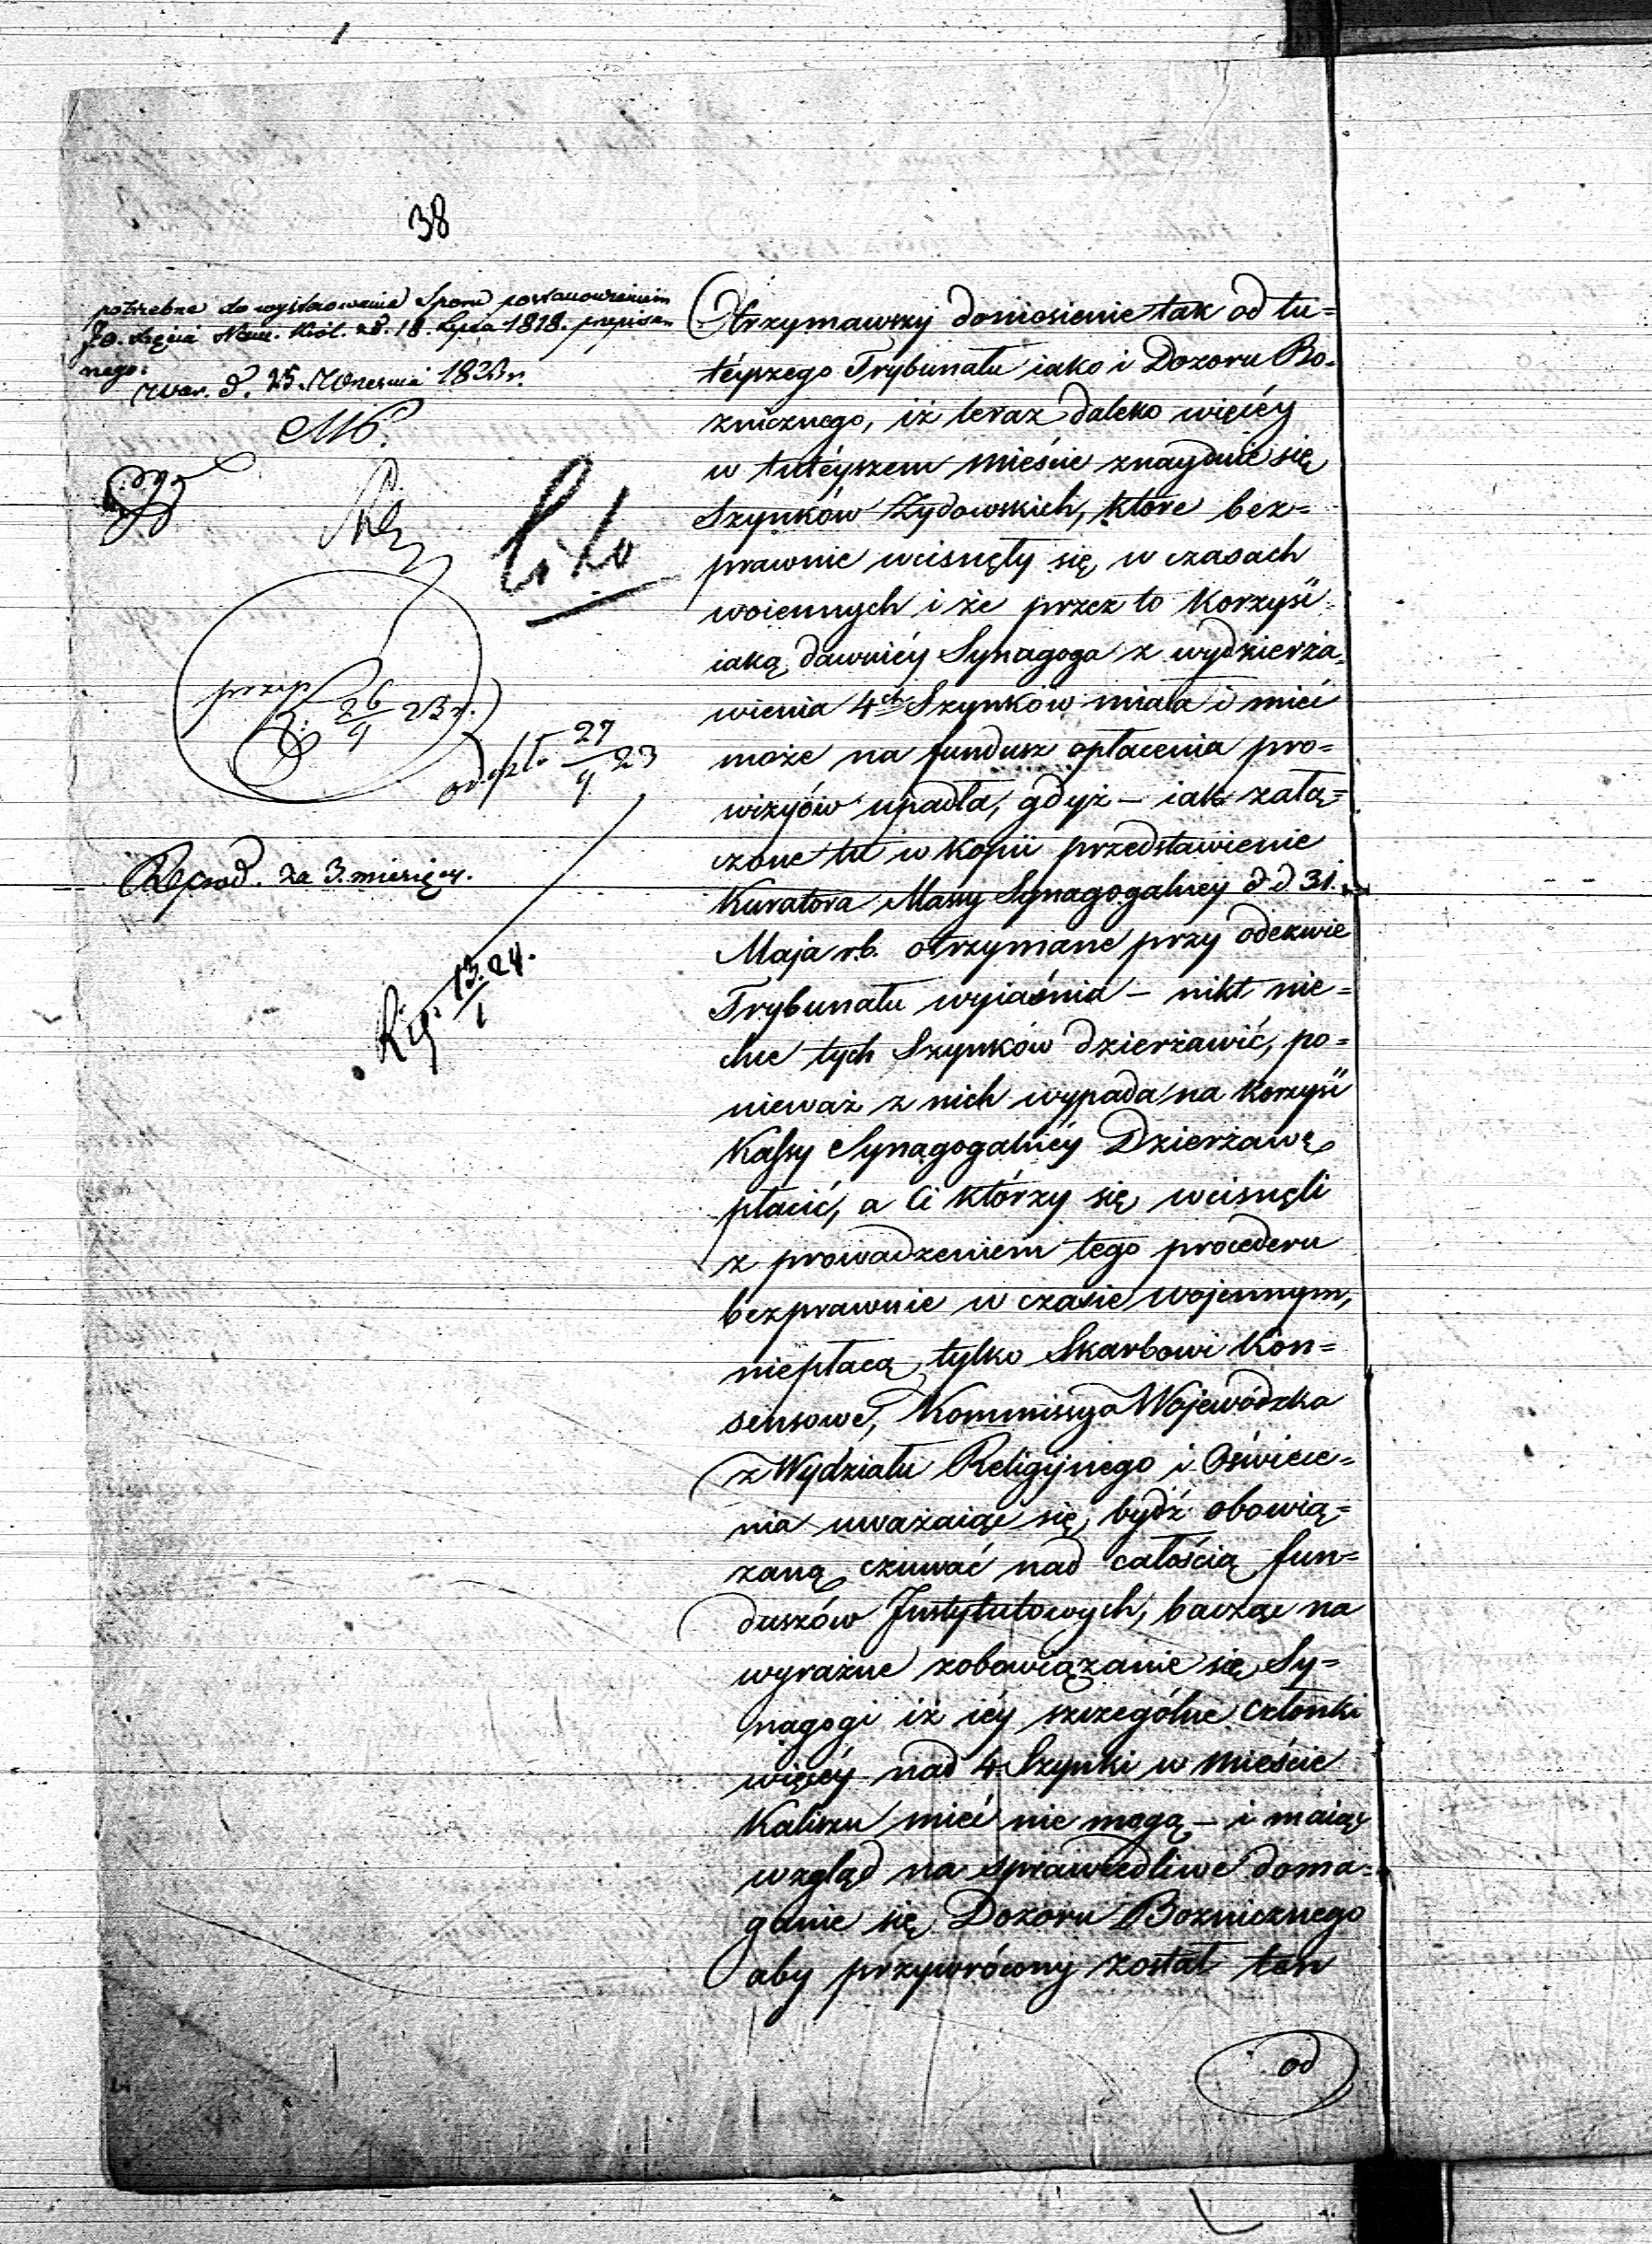 38
potrzebne do wystosowania Sporu postanowieniem
JO. Xięcia Nam. Król. z d. 18. Lipca 1818. przepisa-
nego.
War. d. 25. Września 1823 r.
Cito
przep
26/9 23 r.
odeszło 27/9 23
Reprod. za 3. miesięcy.
13/1 24.
Otrzymawszy doniesienie tak od tu=
téyszego Trybunału iako i Dozoru Bo-
znicznego, iż teraz daleko więcéy
w tutéyszem mieście znayduie się
Szynków Żydowskich, które bez=
prawnie wcisnęły się w czasach
woiennych i że przez to korzyść
iaką dawniéy Synagoga z wydzierża-
wienia 4ch Szynków miała i mieć
może na fundusz opłacenia pro=
wizyów upadła, gdyż – iak załą=
czone tu w kopii przedstawienie
Kuratora Massy Synagogalnéy d d 31.
Maja r.b. otrzymane przy odezwie
Trybunału wyiaśnia – nikt nie=
chce tych Szynków dzierżawić, po=
nieważ z nich wypada na korzyść
Kassy Synagogalnéy Dzierżawę
płacić, a Ci którzy się wcisnęli
z prowadzeniem tego procederu
bezprawnie w czasie wojennym,
niepłacą tylko Skarbowi Kon=
sensowe, Kommissya Wojewódzka
z Wydziału Religijnego i Oświece=
nia uważaiąc się bydź obowią=
zaną czuwać nad całością fun=
duszów Instytutowych, bacząc na
wyraźne zobowiązanie się Sy=
nagogi iż iéy szczególne członki
więcéy nad 4 Szynki w mieście
Kaliszu mieć nie mogą – i maiąc
wzgląd na sprawiedliwe doma-
ganie się Dozoru Boznicznego
aby przywrócony został ten
od